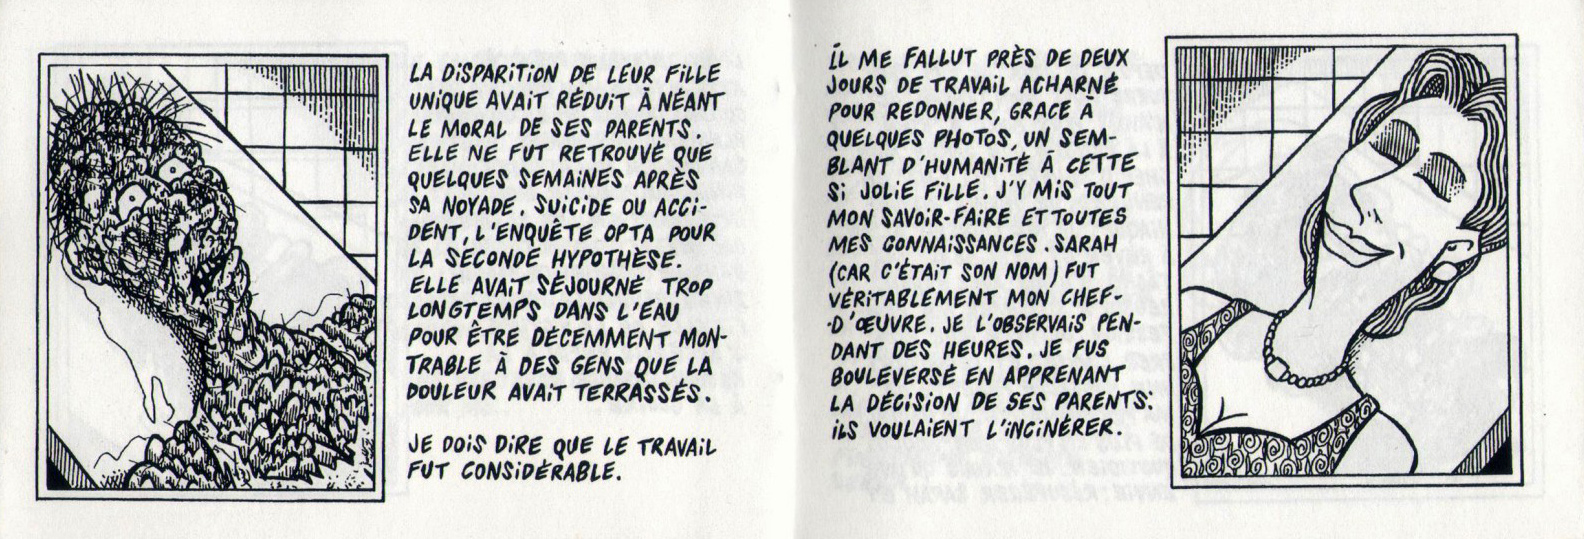 LA DISPARITION DE LEUR FILLE
UNIQUE AVAIT RÉDUIT À NÉANT
LE MORAL DE SES PARENTS.
ELLE NE FUT RETROUVÉ QUE
QUELQUES SEMAINES APRÈS
SA NOYADE. SUICIDE OU ACCI-
DENT, L'ENQUÊTE OPTA POUR
LA SECONDE HYPOTHÈSE.
ELLE AVAIT SÉJOURNÉ TROP
LONGTEMPS DANS L'EAU
POUR ÊTRE DÉCEMMENT MON-
TRABLE À DES GENS QUE LA
DOULEUR AVAIT TERRASSÉS.
JE DOIS DIRE QUE LE TRAVAIL
FUT CONSIDÉRABLE.
IL ME FALLUT PRÈS DE DEUX
JOURS DE TRAVAIL ACHARNÉ
POUR REDONNER, GRACE À
QUELQUES PHOTOS, UN SEM-
BLANT D'HUMANITÉ À CETTE
SI JOLIE FILLE. J'Y MIS TOUT
MON SAVOIR-FAIRE ET TOUTES
MES CONNAISSANCES. SARAH
(CAR C'ÉTAIT SON NOM) FUT
VÉRITABLEMENT MON CHEF-
-D'ŒUVRE. JE L'OBSERVAIS PEN-
DANT DES HEURES. JE FUS
BOULEVERSÉ EN APPRENANT
LA DÉCISION DE SES PARENTS:
ILS VOULAIENT L'INCINÉRER.